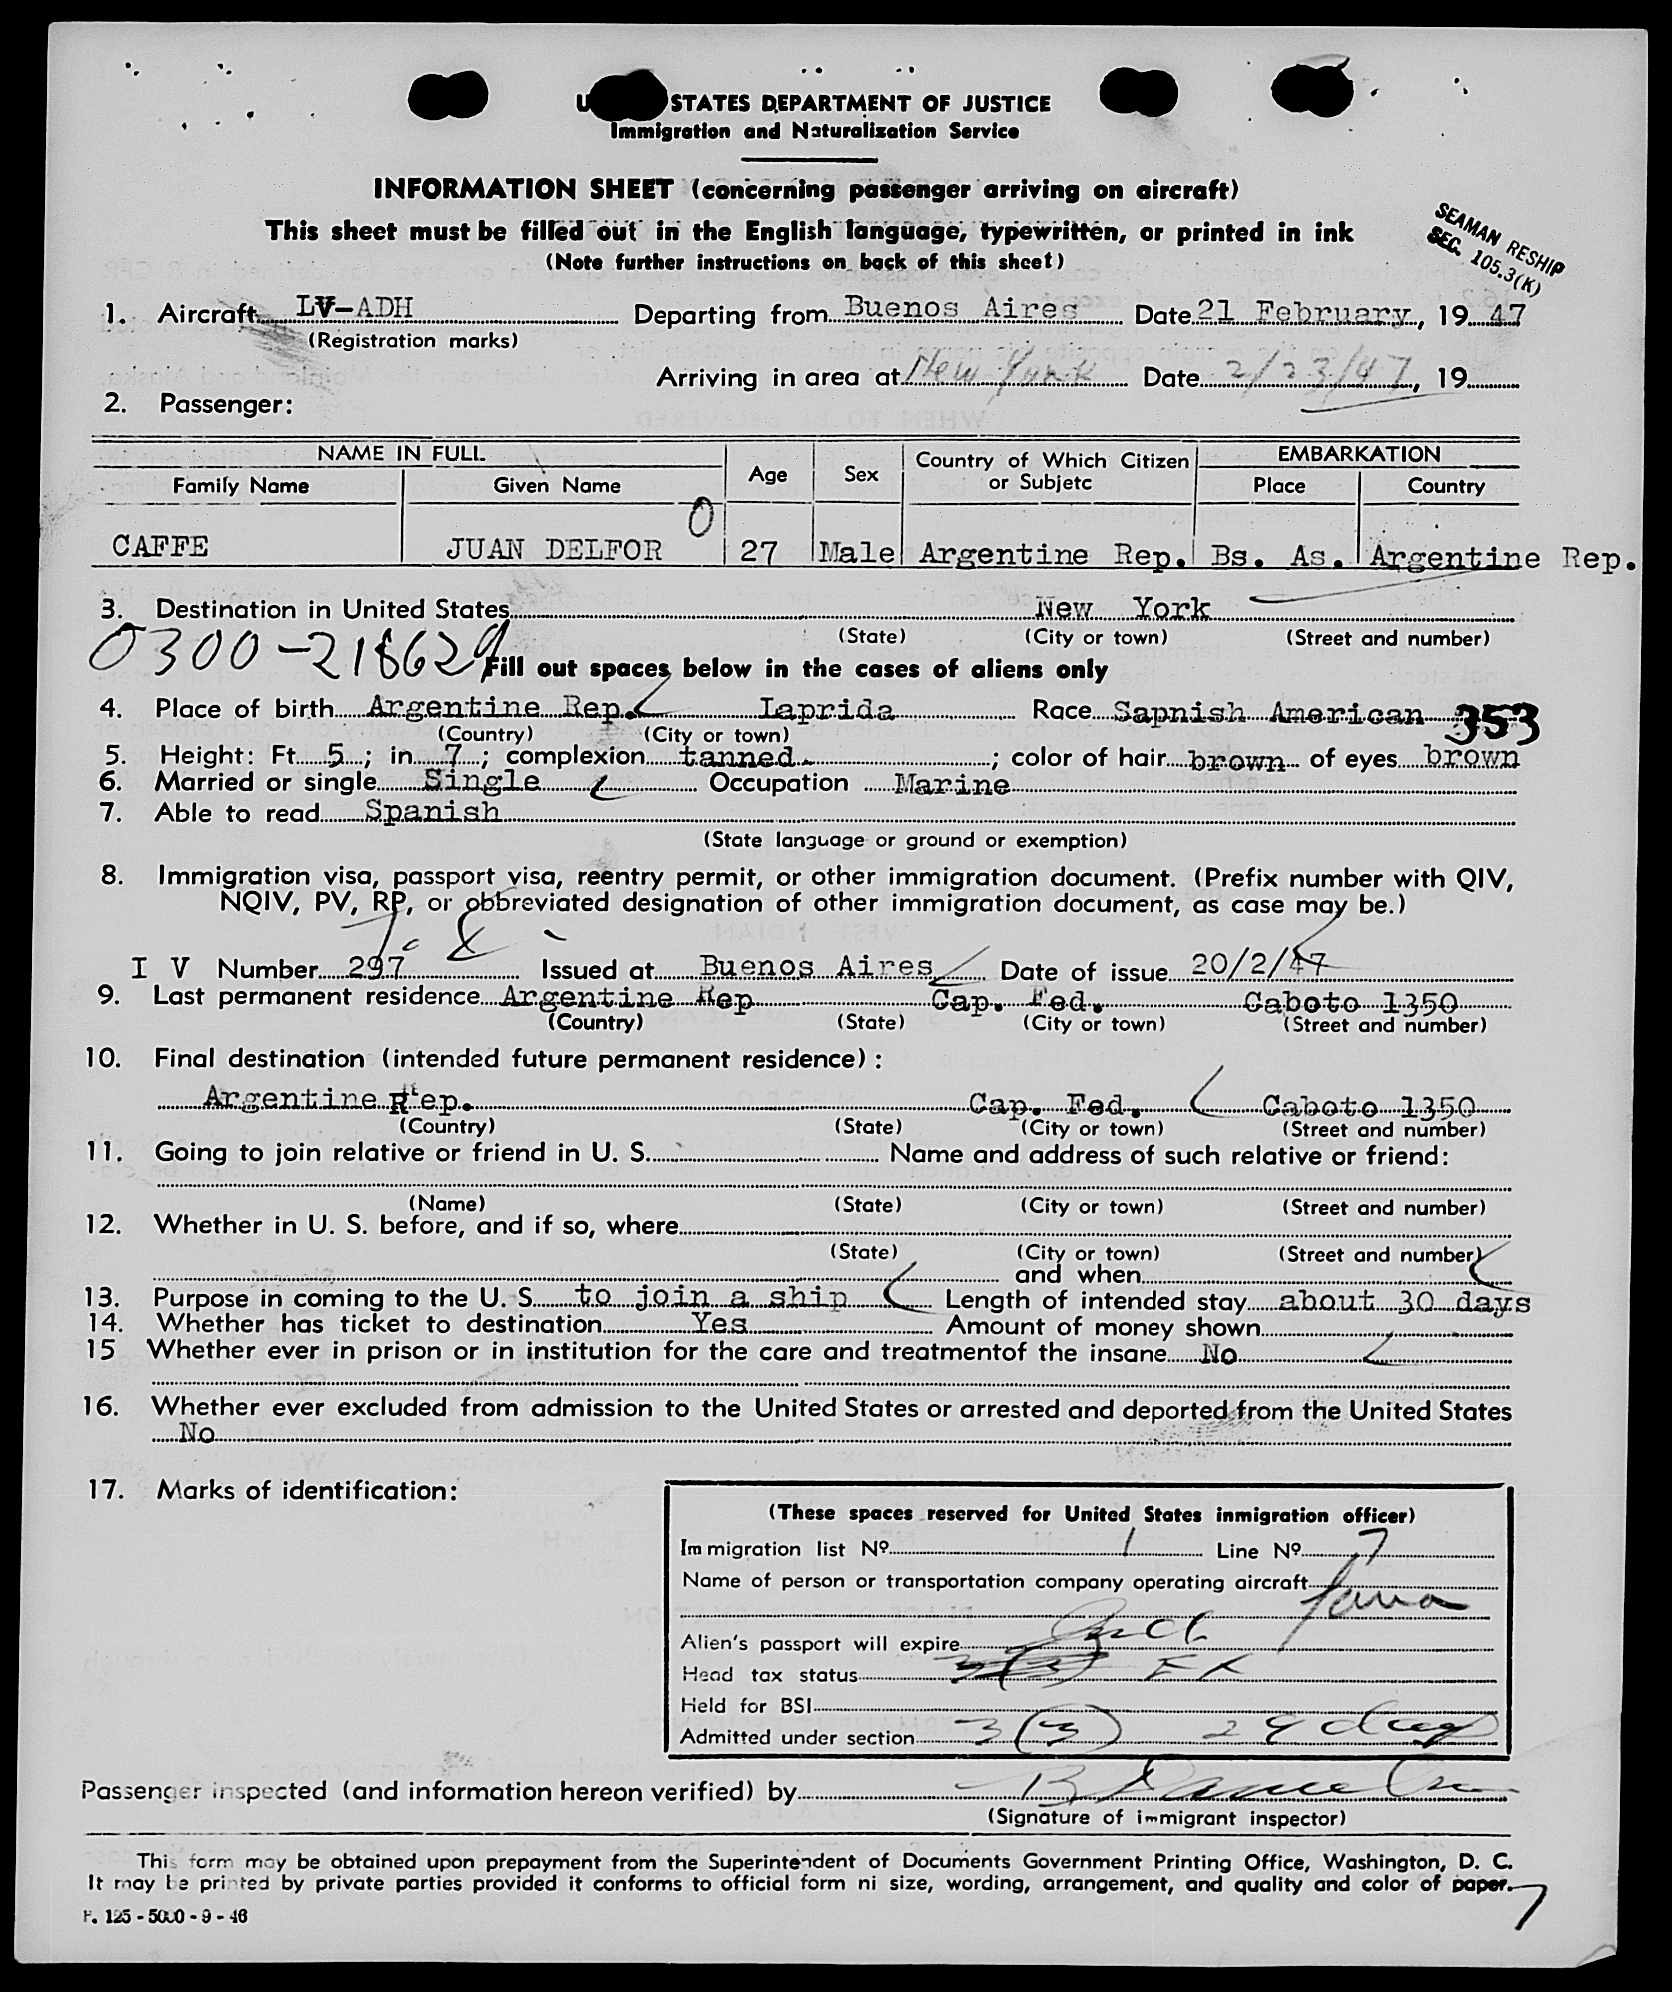 STATES DEPARTMENT OF JUSTICE
Immigration and Naturalization Service
INFORMATION SHEET (concerning passenger arriving on aircraft)
This sheet must be filled out in the English language, typewritten, or printed in ink
(Note further instructions on back of this sheet)
SEAMAN RESHIP
SEC. 105.3(K)
1. Aircraft LV-ADH Departing from Buenos Aires Date 21 February, 19 47
(Registration marks)
Arriving in area at New York Date 2/23/47, 19
2. Passenger:
NAME IN FULL Age Sex Country of Which Citizen or Subjetc EMBARKATION
Family Name Given Name Place Country
0
CAFFE JUAN DELFOR 27 Male Argentine Rep. Bs. As. Argentine Rep.
3. Destination in United States New York
(State) (City or town) (Street and number)
0300-218629
Fill out spaces below in the cases of aliens only
4. Place of birth Argentine Rep. Laprida Race Sapnish American 353
(Country) (City or town)
5. Height: Ft. 5; in. 7; complexion tanned.; color of hair brown of eyes brown
6. Married or single Single Occupation Marine
7. Able to read Spanish
(State language or ground or exemption)
8. Immigration visa, passport visa, reentry permit, or other immigration document. (Prefix number with QIV,
NQIV, PV, RP, or obbreviated designation of other immigration document, as case may be.)
I V Number 297 Issued at Buenos Aires Date of issue 20/2/47
9. Last permanent residence Argentine Rep Cap. Fed. Caboto 1350
(Country) (State) (City or town) (Street and number)
10. Final destination (intended future permanent residence):
Argentine Rep. Cap. Fed. Caboto 1350
(Country) (State) (City or town) (Street and number)
11. Going to join relative or friend in U. S. Name and address of such relative or friend:
(Name) (State) (City or town) (Street and number)
12. Whether in U. S. before, and if so, where
(State) (City or town) (Street and number)
and when
13. Purpose in coming to the U. S. to join a ship Length of intended stay about 30 days
14. Whether has ticket to destination Yes Amount of money shown
15 Whether ever in prison or in institution for the care and treatmentof the insane No
16. Whether ever excluded from admission to the United States or arrested and deported from the United States
No
17. Marks of identification:
(These spaces reserved for United States inmigration officer)
Immigration list Nº 1 Line Nº 7
Name of person or transportation company operating aircraft
Alien's passport will expire
Head tax status EX
Held for BSI
Admitted under section 3(3) 29 days
Passenger inspected (and information hereon verified) by
(Signature of immigrant inspector)
This form may be obtained upon prepayment from the Superintendent of Documents Government Printing Office, Washington, D. C.
It may be printed by private parties provided it conforms to official form ni size, wording, arrangement, and quality and color of paper.
7
F. 125-5000-9-46